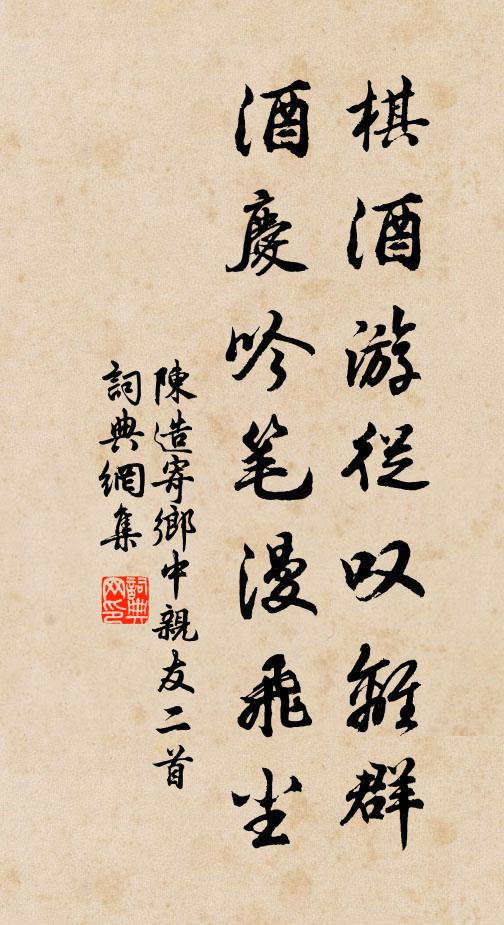 棋酒游從叹離群
酒慶吟笔漫飛尘
陳造寄鄉中親友二首
詞典網集
詞典网印